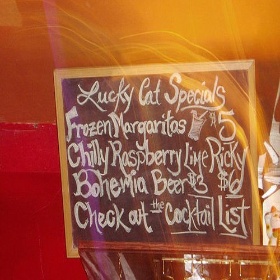 Lucky Cat Specials
Frozen Margaritas $5
Chilly Raspberry Lime Ricky
Bohemia Beer $3 $6
Check out the Cocktail List